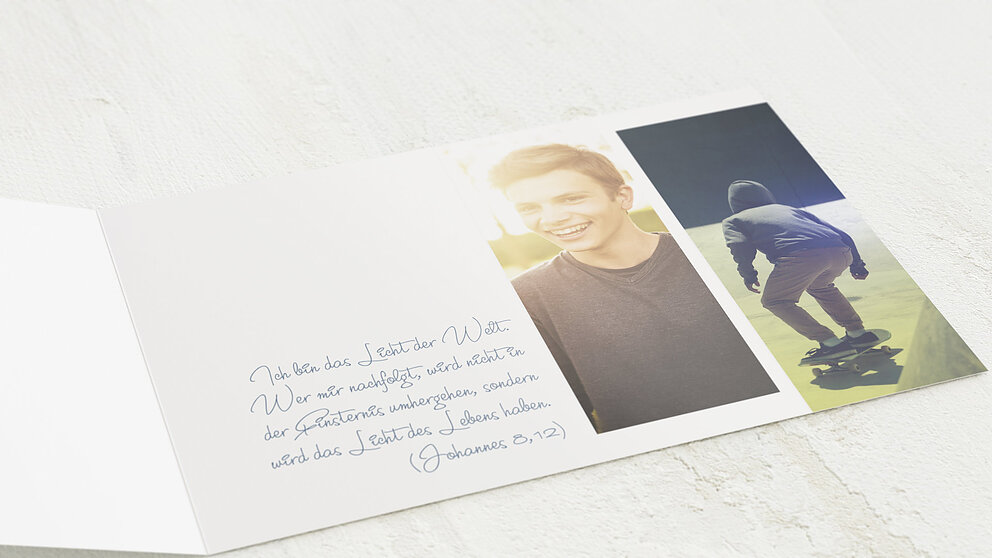 Ich bin das Licht der Welt.
Wer mir nachfolgt, wird nicht in
der Finsternis umhergehen, sondern
wird das Licht des Lebens haben.
(Johannes 8,12)